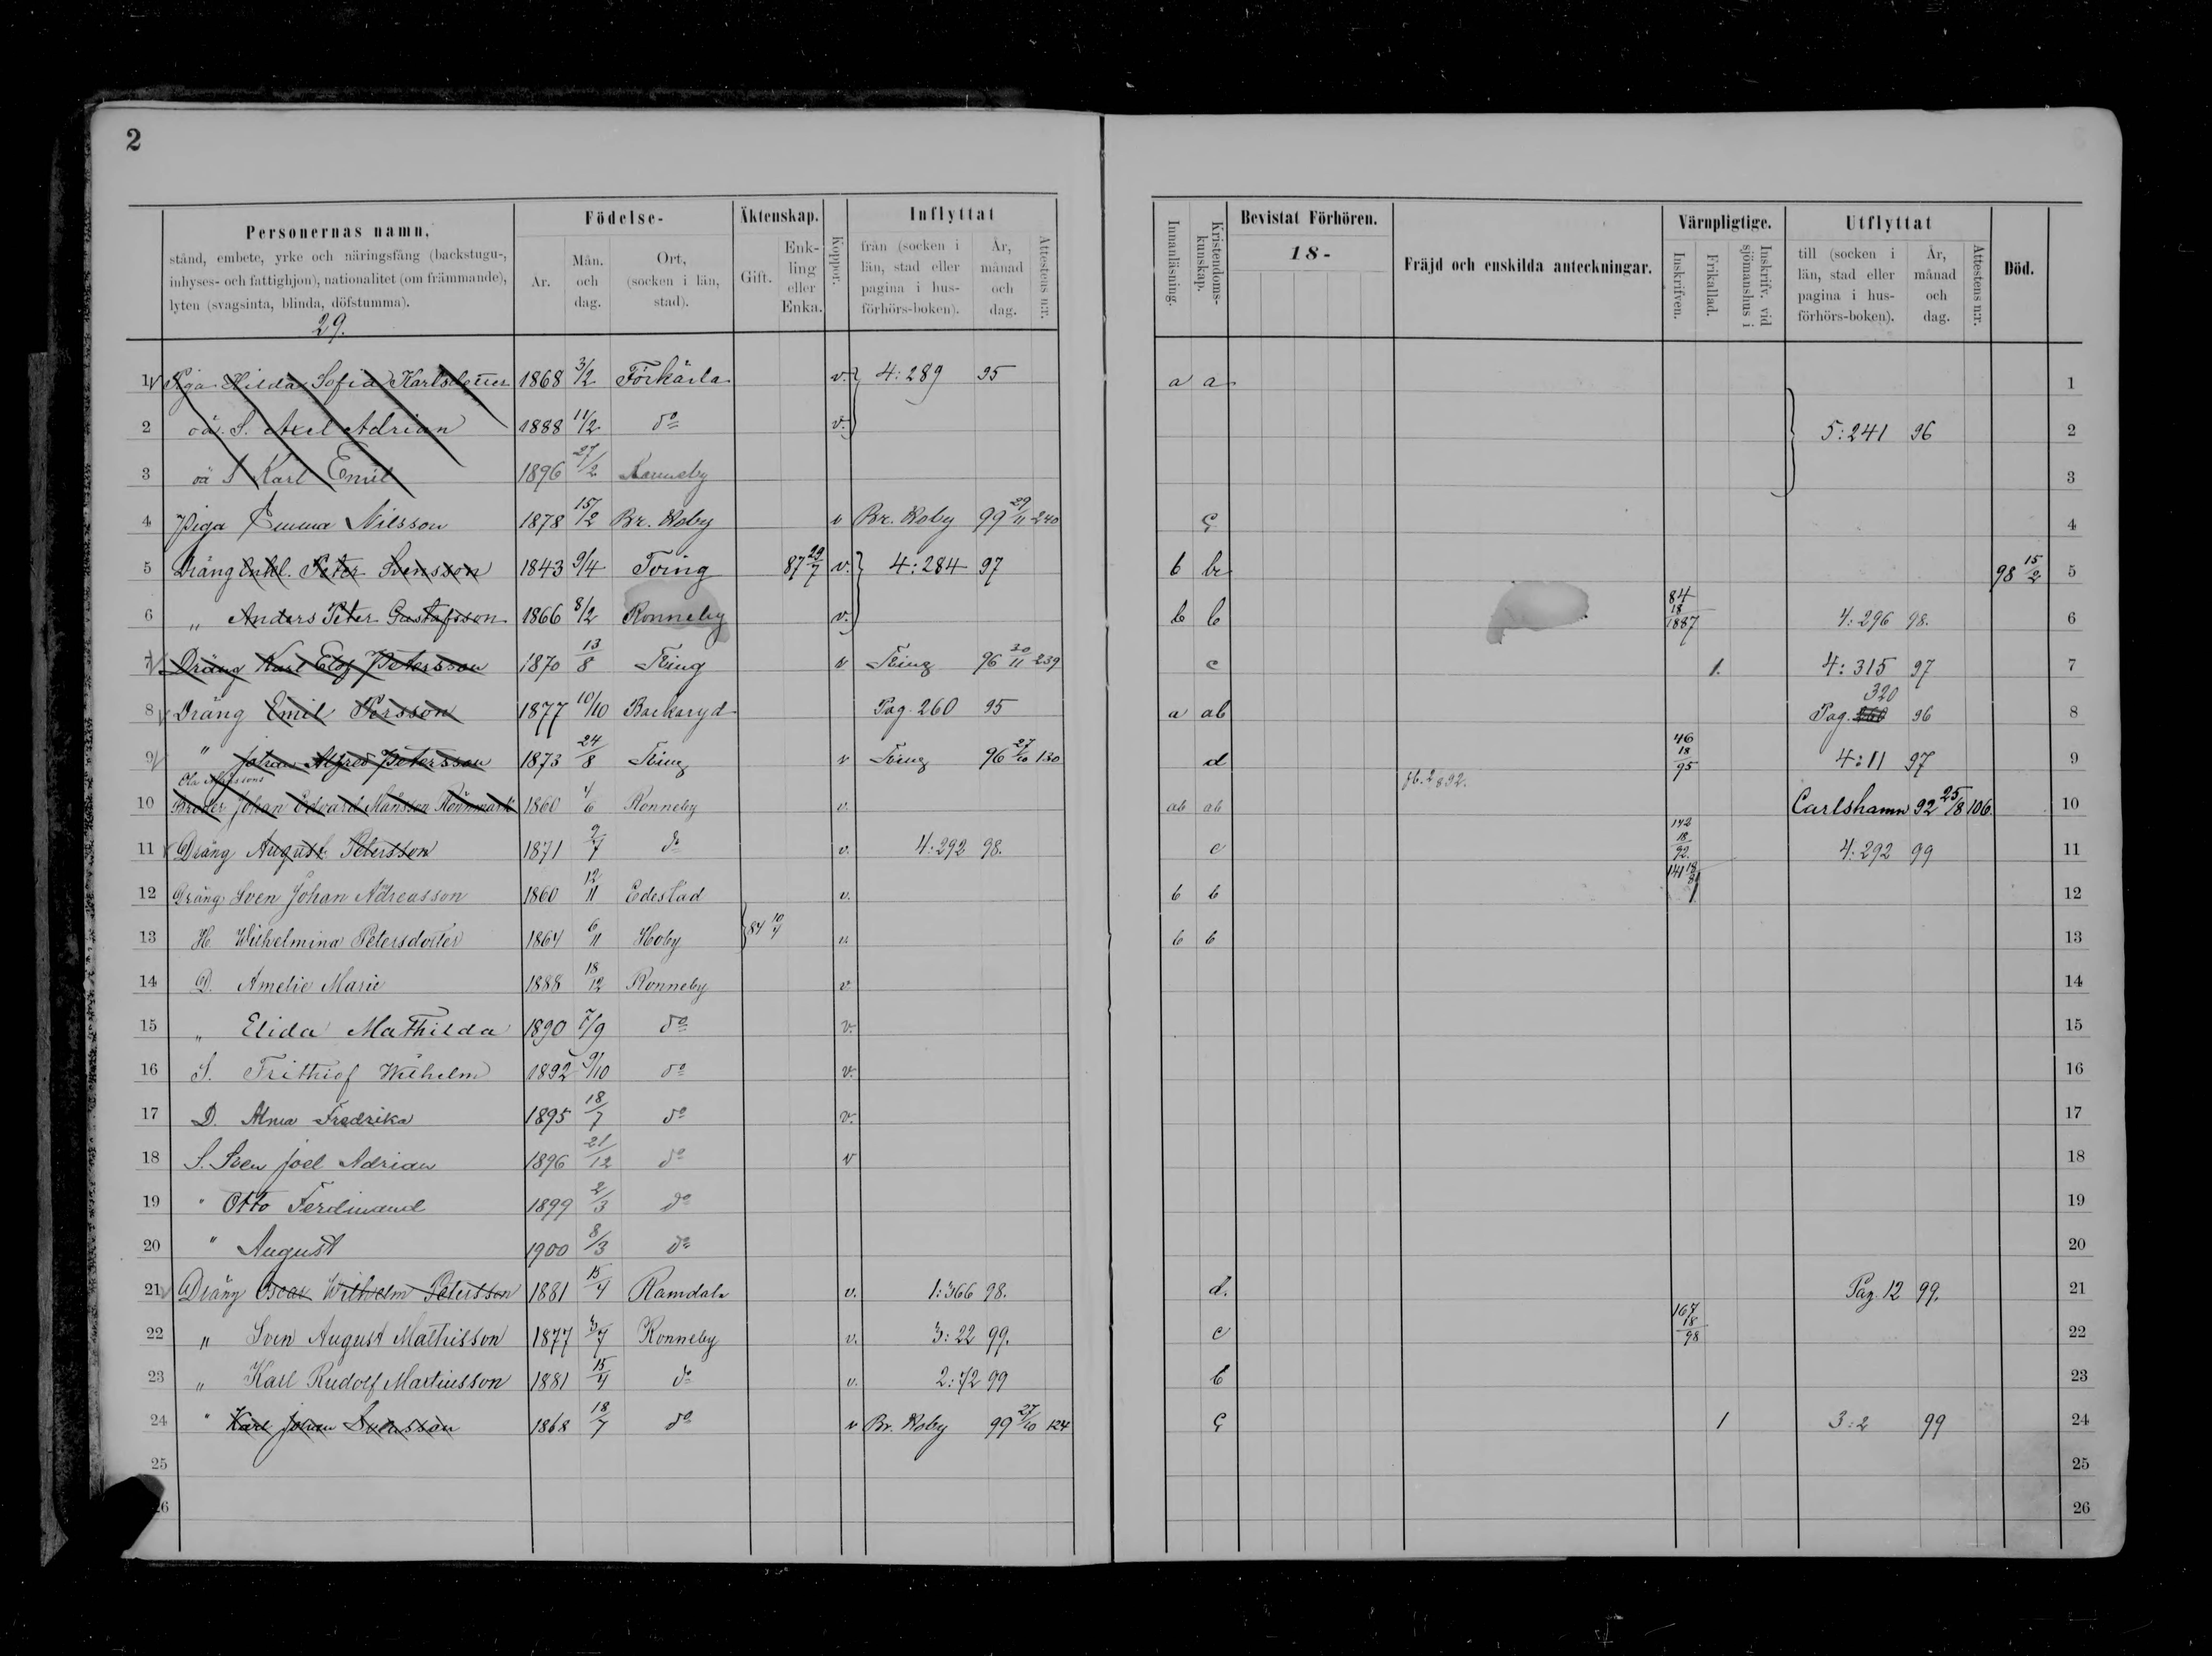 2
Personernas namn,
stånd, embete, yrke och näringsfång (backstugu-,
inhyses- och fattighjon), nationalitet (om främmande),
lyten (svagsinta, blinda, döfstumma).
29.
Födelse-
År.
Mån. och dag.
Ort, (socken i län, stad).
Äktenskap.
Gift.
Enk-ling eller Enka.
Koppor.
Inflyttat
från (socken i län, stad eller pagina i hus-förhörs-boken).
År, månad och dag.
Attestens n:r.
Innanläsning.
Kristendoms-kunskap.
Bevistat Förhören.
18-
Fräjd och enskilda anteckningar.
Värnpligtige.
Inskrifven.
Frikallad.
Inskrifv. vid sjömanshus i
Utflyttat
till (socken i län, stad eller pagina i hus-förhörs-boken).
År, månad och dag.
Attestens n:r.
Död.
1 Piga Hilda Sofia Karlsdotter 1868 3/2 Förkärla v. 4:289 95 a a 1
2 oä. S. Axel Adrian 1888 11/2 do v. 5:241 96 2
3 oä S Karl Emil 1896 27/2 Ronneby 3
4 Piga Emma Nilsson 1878 15/2 Br. Hoby v Br. Hoby 99 29/11 240 4
5 Dräng Enkl. Peter Svensson 1843 9/4 Tving 87 29/7 v. 4:284 97 b 98 15/2 5
6 „ Anders Peter Gustafsson 1866 8/2 Ronneby v. b b 84 18/1887 4:296 98. 6
7 Dräng Karl Elof Petersson 1870 13/8 Tving v Tving 96 30/11 239 c 1. 4:315 97 7
8 Dräng Emil Persson 1877 10/10 Backaryd Pag. 260 95 a ab Pag. 320 96 8
9 " Johan Alfred Petersson 1873 24/8 Tving v Tving 96 27/10 130 d 46 18/95 4:11 97 9
10 Broder Johan Edvard Månsson Rönnmark 1860 4/6 Ronneby v. ab ab Carlshamn 92 25/8 106. 10
11 Dräng August Petersson 1871 9/7 do v. 4:292 98. c 142 18/92. 4:292 99 11
12 Dräng Sven Johan Andreasson 1860 12/11 Edestad v. b b 141 1 12
13 H. Wilhelmina Petersdotter 1864 6/11 Hoby 84 v. b b 13
14 D. Amelie Marie 1888 18/12 Ronneby v. 14
15 „ Elida Mathilda 1890 7/9 do v. 15
16 S. Frithiof Wilhelm 1892 9/10 do v. 16
17 D. Alma Fredrika 1895 18/7 do v. 17
18 S. Sven Joel Adrian 1896 21/12 do v 18
19 " Otto Ferdinand 1899 2/3 do 19
20 " August 1900 8/3 do 20
21 Dräng Oscar Wilhelm Petersson 1881 15/4 Ramdala v. 1:366 98. d. Pag. 12 99. 21
22 „ Sven August Mathisson 1877 3/7 Ronneby v. 3:22 99. c 167 18/98 22
23 „ Karl Rudolf Martinsson 1881 15/4 do v. 2:72 99 b 23
24 " Karl Johan Svensson 1868 18/7 do v Br. Hoby 99 27/10 124 1 3:2 99 24
25 25
26 26